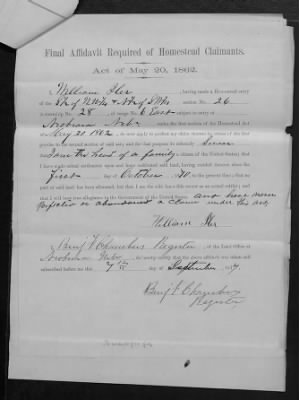 Final Affidavit Required of Homestead Claimants.
Act of May 20, 1862.
I, William Iler, having made a Homestead entry
of the section No. 26
in township No. 28 of range No. 6 East subject to entry at
under the first section of the Homestead Act
of May 20 1862 do now apply to perfect my claim thereto by virtue of the
first proviso to the second section of said act; and for that purpose do solemnly
I am the head of a family citizen of the United States; that
I have made actual settlement upon and have cultivated said land, having resided thereon since the
First day of October 1870, to the present time; that no
part of said land has been alienated, but that I am the sole bona fide owner as an actual settler; and
that I will bear true allegiance to the Government of the United States and have never
perfected or abandoned a claim under this act
William Iler
I, Benj F Chambers Register, of the Land Office at
do hereby certify that the above affidavit was taken and
subscribed before me this 9th day of September 187
Benj F. Chambers
Register